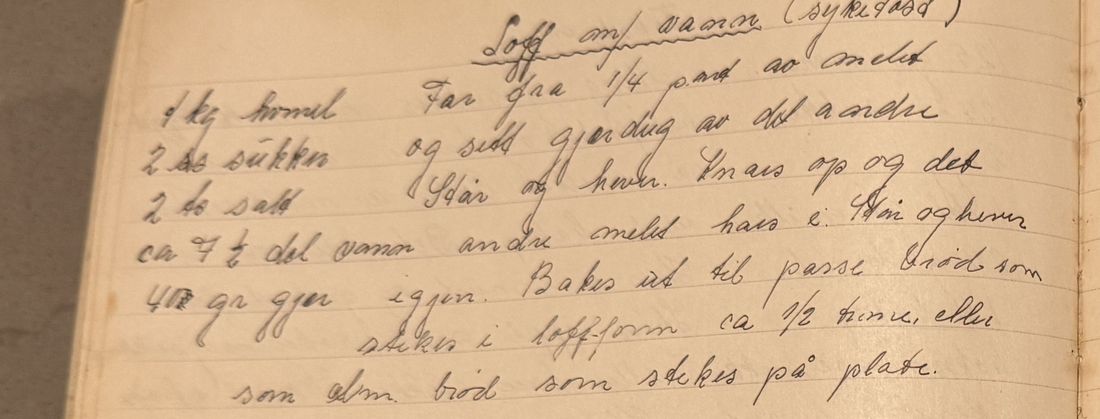 Loff m/ vann (sykekost)
1 kg hvmel Tar fra 1/4 part av melet
2 ss sukker og sett gjærdeig av det andre
2 ts salt Står og hever. Knaes op og det
ca 7 ½ del vann andre melet haes i. Står og hever
40 gr gjær igjen. Bakes ut til passe brød som
stekes i loff-form ca 1/2 time, eller
som alm. brød som stekes på plate.